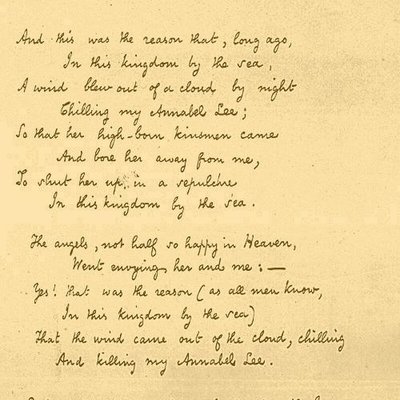 And this was the reason that, long ago,
In this kingdom by the sea,
A wind blew out of a cloud by night
Chilling my Annabel Lee;
So that her high-born kinsmen came
And bore her away from me,
To shut her up in a sepulchre
In this kingdom by the sea.
The angels, not half so happy in Heaven,
Went envying her and me: —
Yes! that was the reason (as all men know,
In this kingdom by the sea)
That the wind came out of the cloud, chilling
And killing my Annabel Lee.